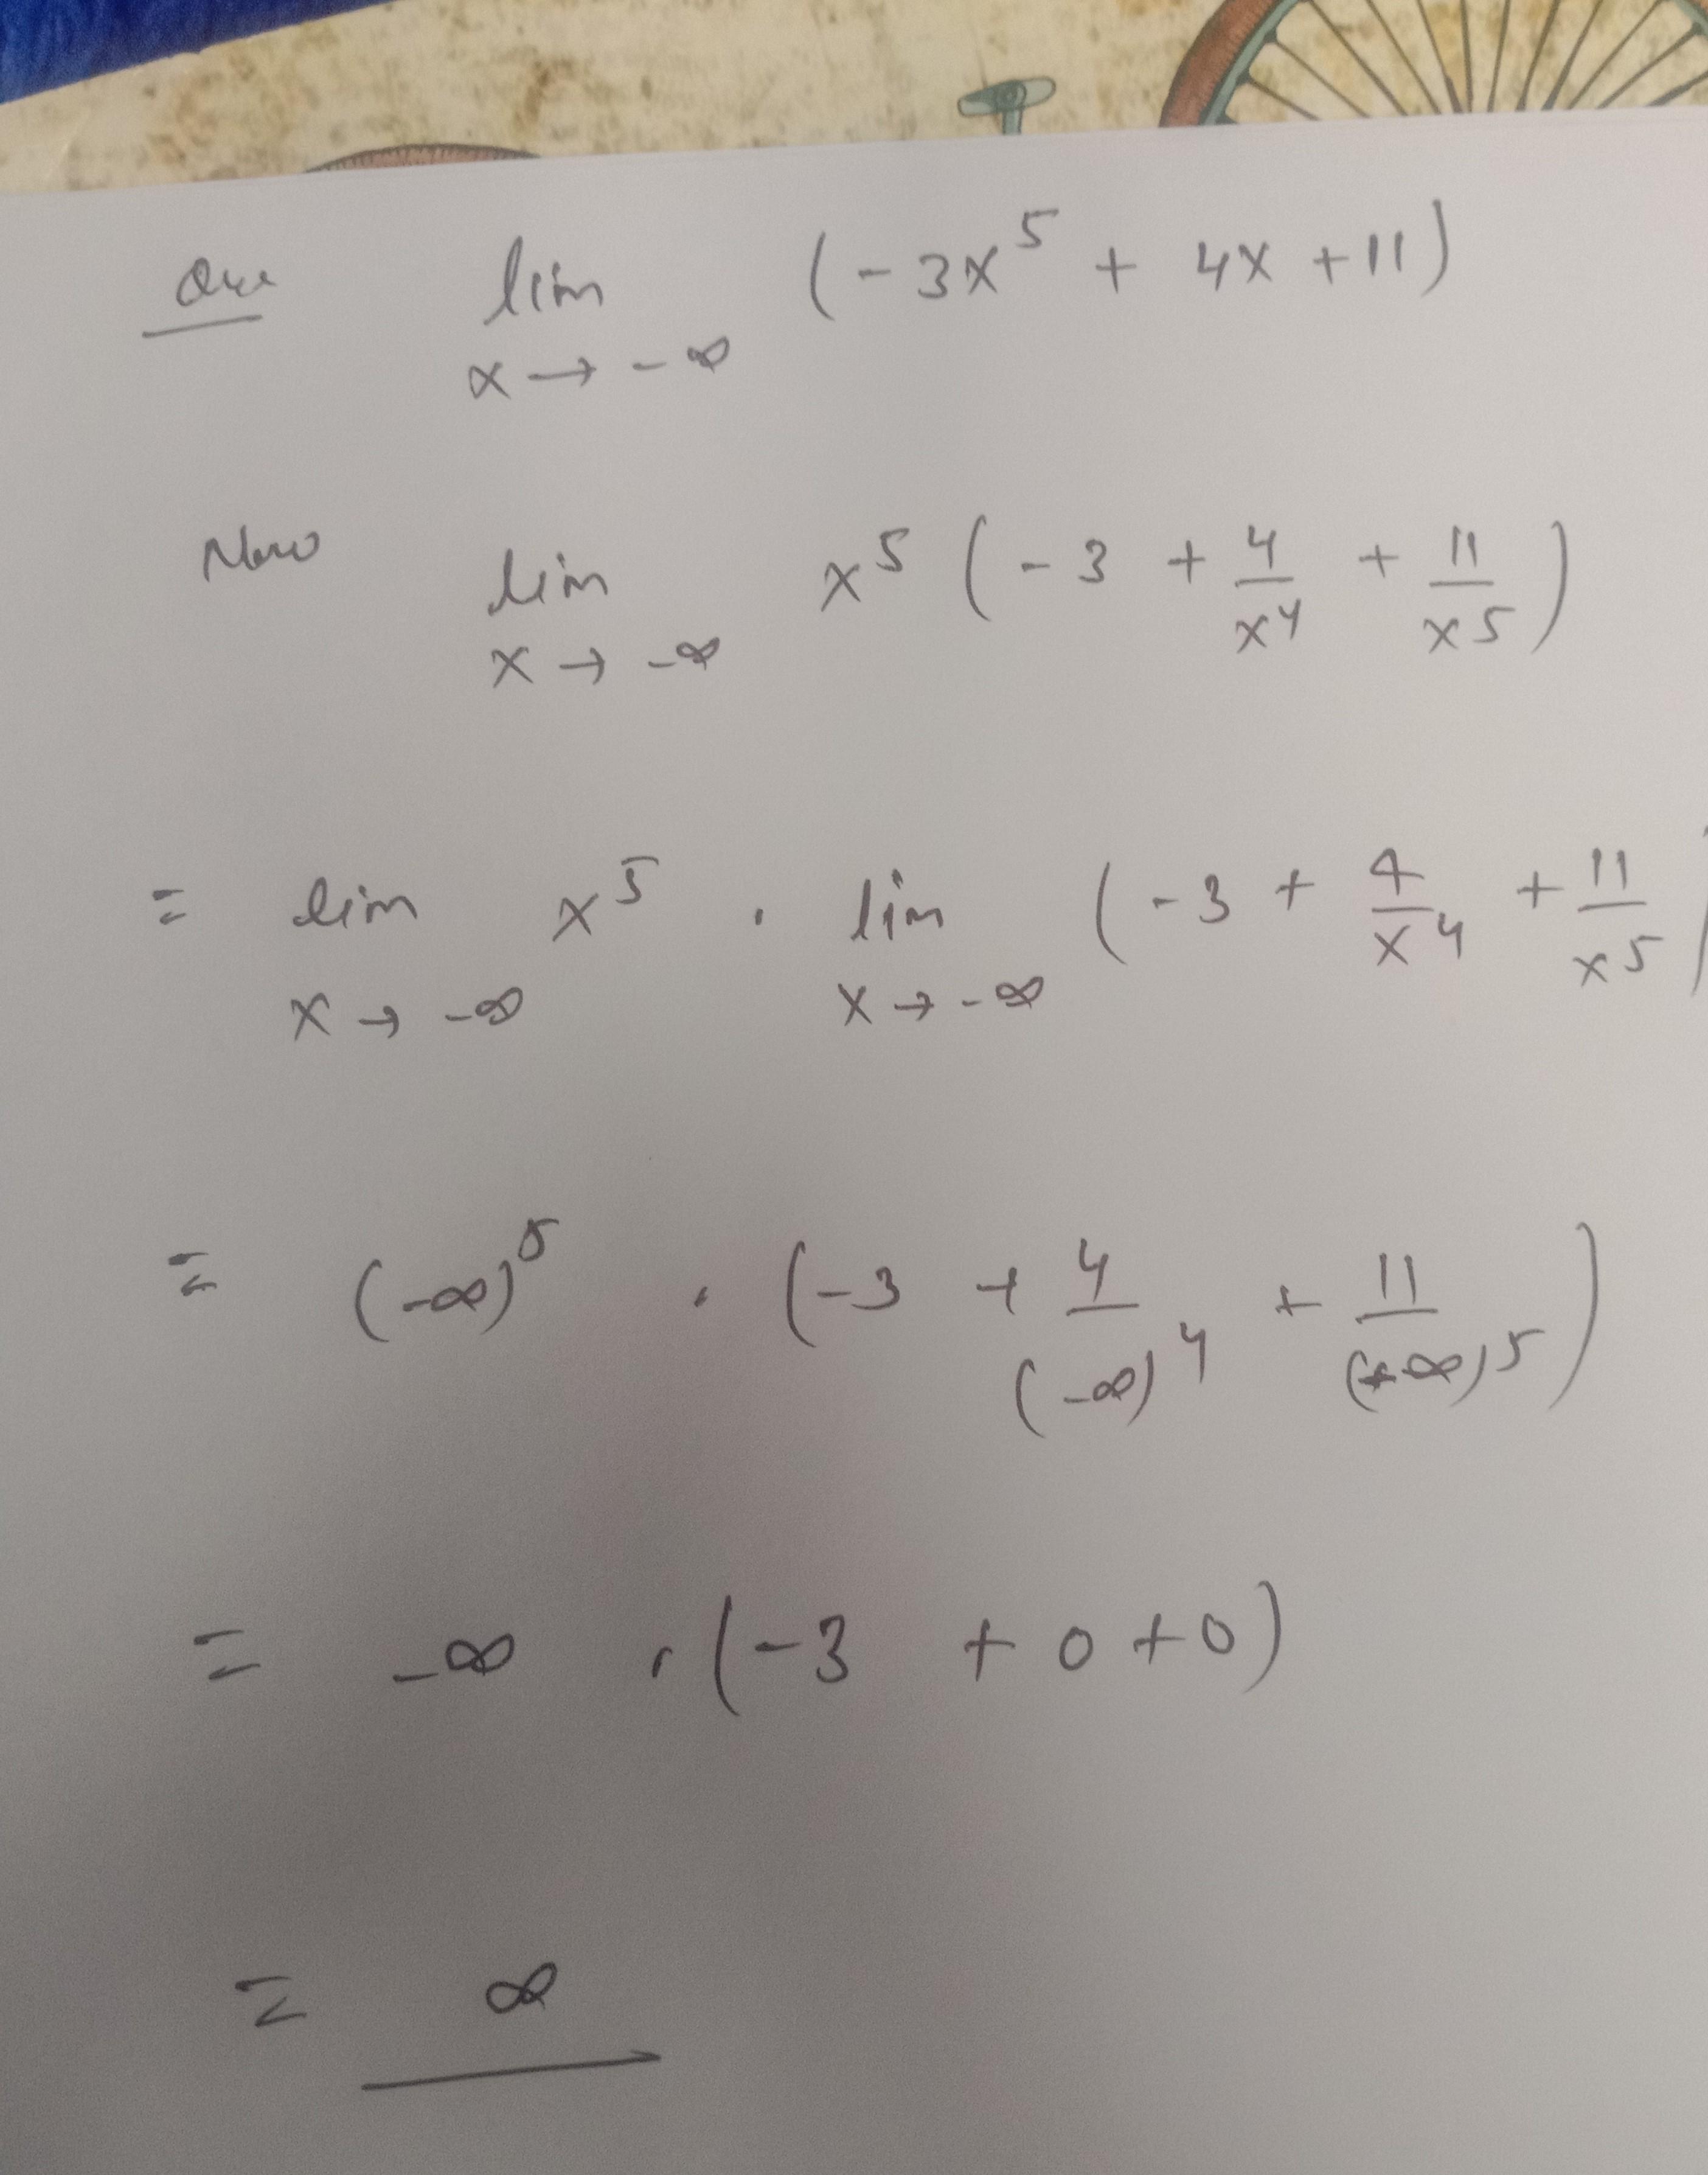 Que lim x → -∞ (-3x⁵ + 4x + 11)
Now lim x → -∞ x⁵ (-3 + 4/x⁴ + 11/x⁵)
= lim x → -∞ x⁵ . lim x → -∞ (-3 + 4/x⁴ + 11/x⁵)
= (-∞)⁵ . (-3 + 4/(-∞)⁴ + 11/(-∞)⁵)
= -∞ . (-3 + 0 + 0)
= ∞